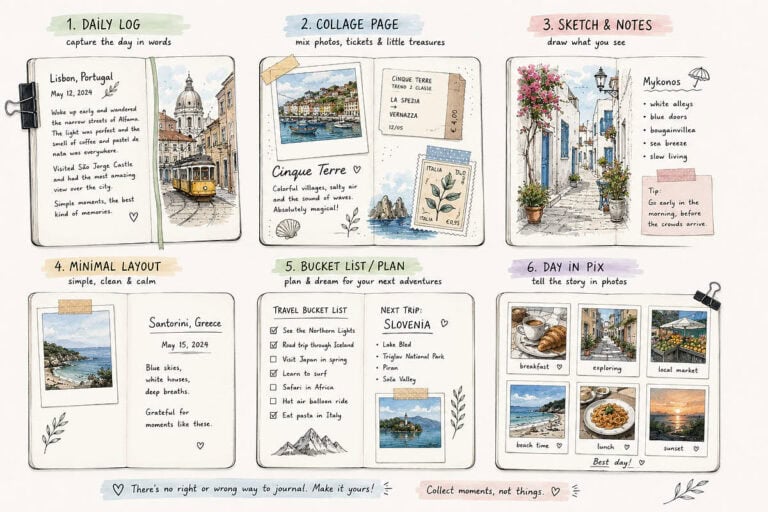 1. DAILY LOG
capture the day in words
Lisbon, Portugal
May 12, 2024
Woke up early and wandered
the narrow streets of Alfama.
The light was perfect and the
smell of coffee and pastel de
nata was everywhere.
Visited São Jorge Castle
and had the most amazing
view over the city.
Simple moments, the best
kind of memories.
2. COLLAGE PAGE
mix photos, tickets & little treasures
CINQUE TERRE
TRENO 2 CLASSE
LA SPEZIA
→
VERNAZZA
12/05
€ 4,00
Cinque Terre
Colorful villages, salty air
and the sound of waves.
Absolutely magical!
ITALIA
ITALIA €0,95
3. SKETCH & NOTES
draw what you see
Mykonos
• white alleys
• blue doors
• bougainvillea
• sea breeze
• slow living
Tip:
Go early in the
morning, before
the crowds arrive.
4. MINIMAL LAYOUT
simple, clean & calm
Santorini, Greece
May 15, 2024
Blue skies,
white houses,
deep breaths.
Grateful for
moments like these.
5. BUCKET LIST / PLAN
plan & dream for your next adventures
TRAVEL BUCKET LIST
See the Northern Lights
Road trip through Iceland
Visit Japan in spring
Learn to surf
Safari in Africa
Hot air balloon ride
Eat pasta in Italy
NEXT TRIP:
SLOVENIA
• Lake Bled
• Triglav National Park
• Piran
• Soča Valley
6. DAY IN PIX
tell the story in photos
breakfast
exploring
local market
beach time
lunch
sunset
Best day!
There's no right or wrong way to journal. Make it yours!
Collect moments, not things.